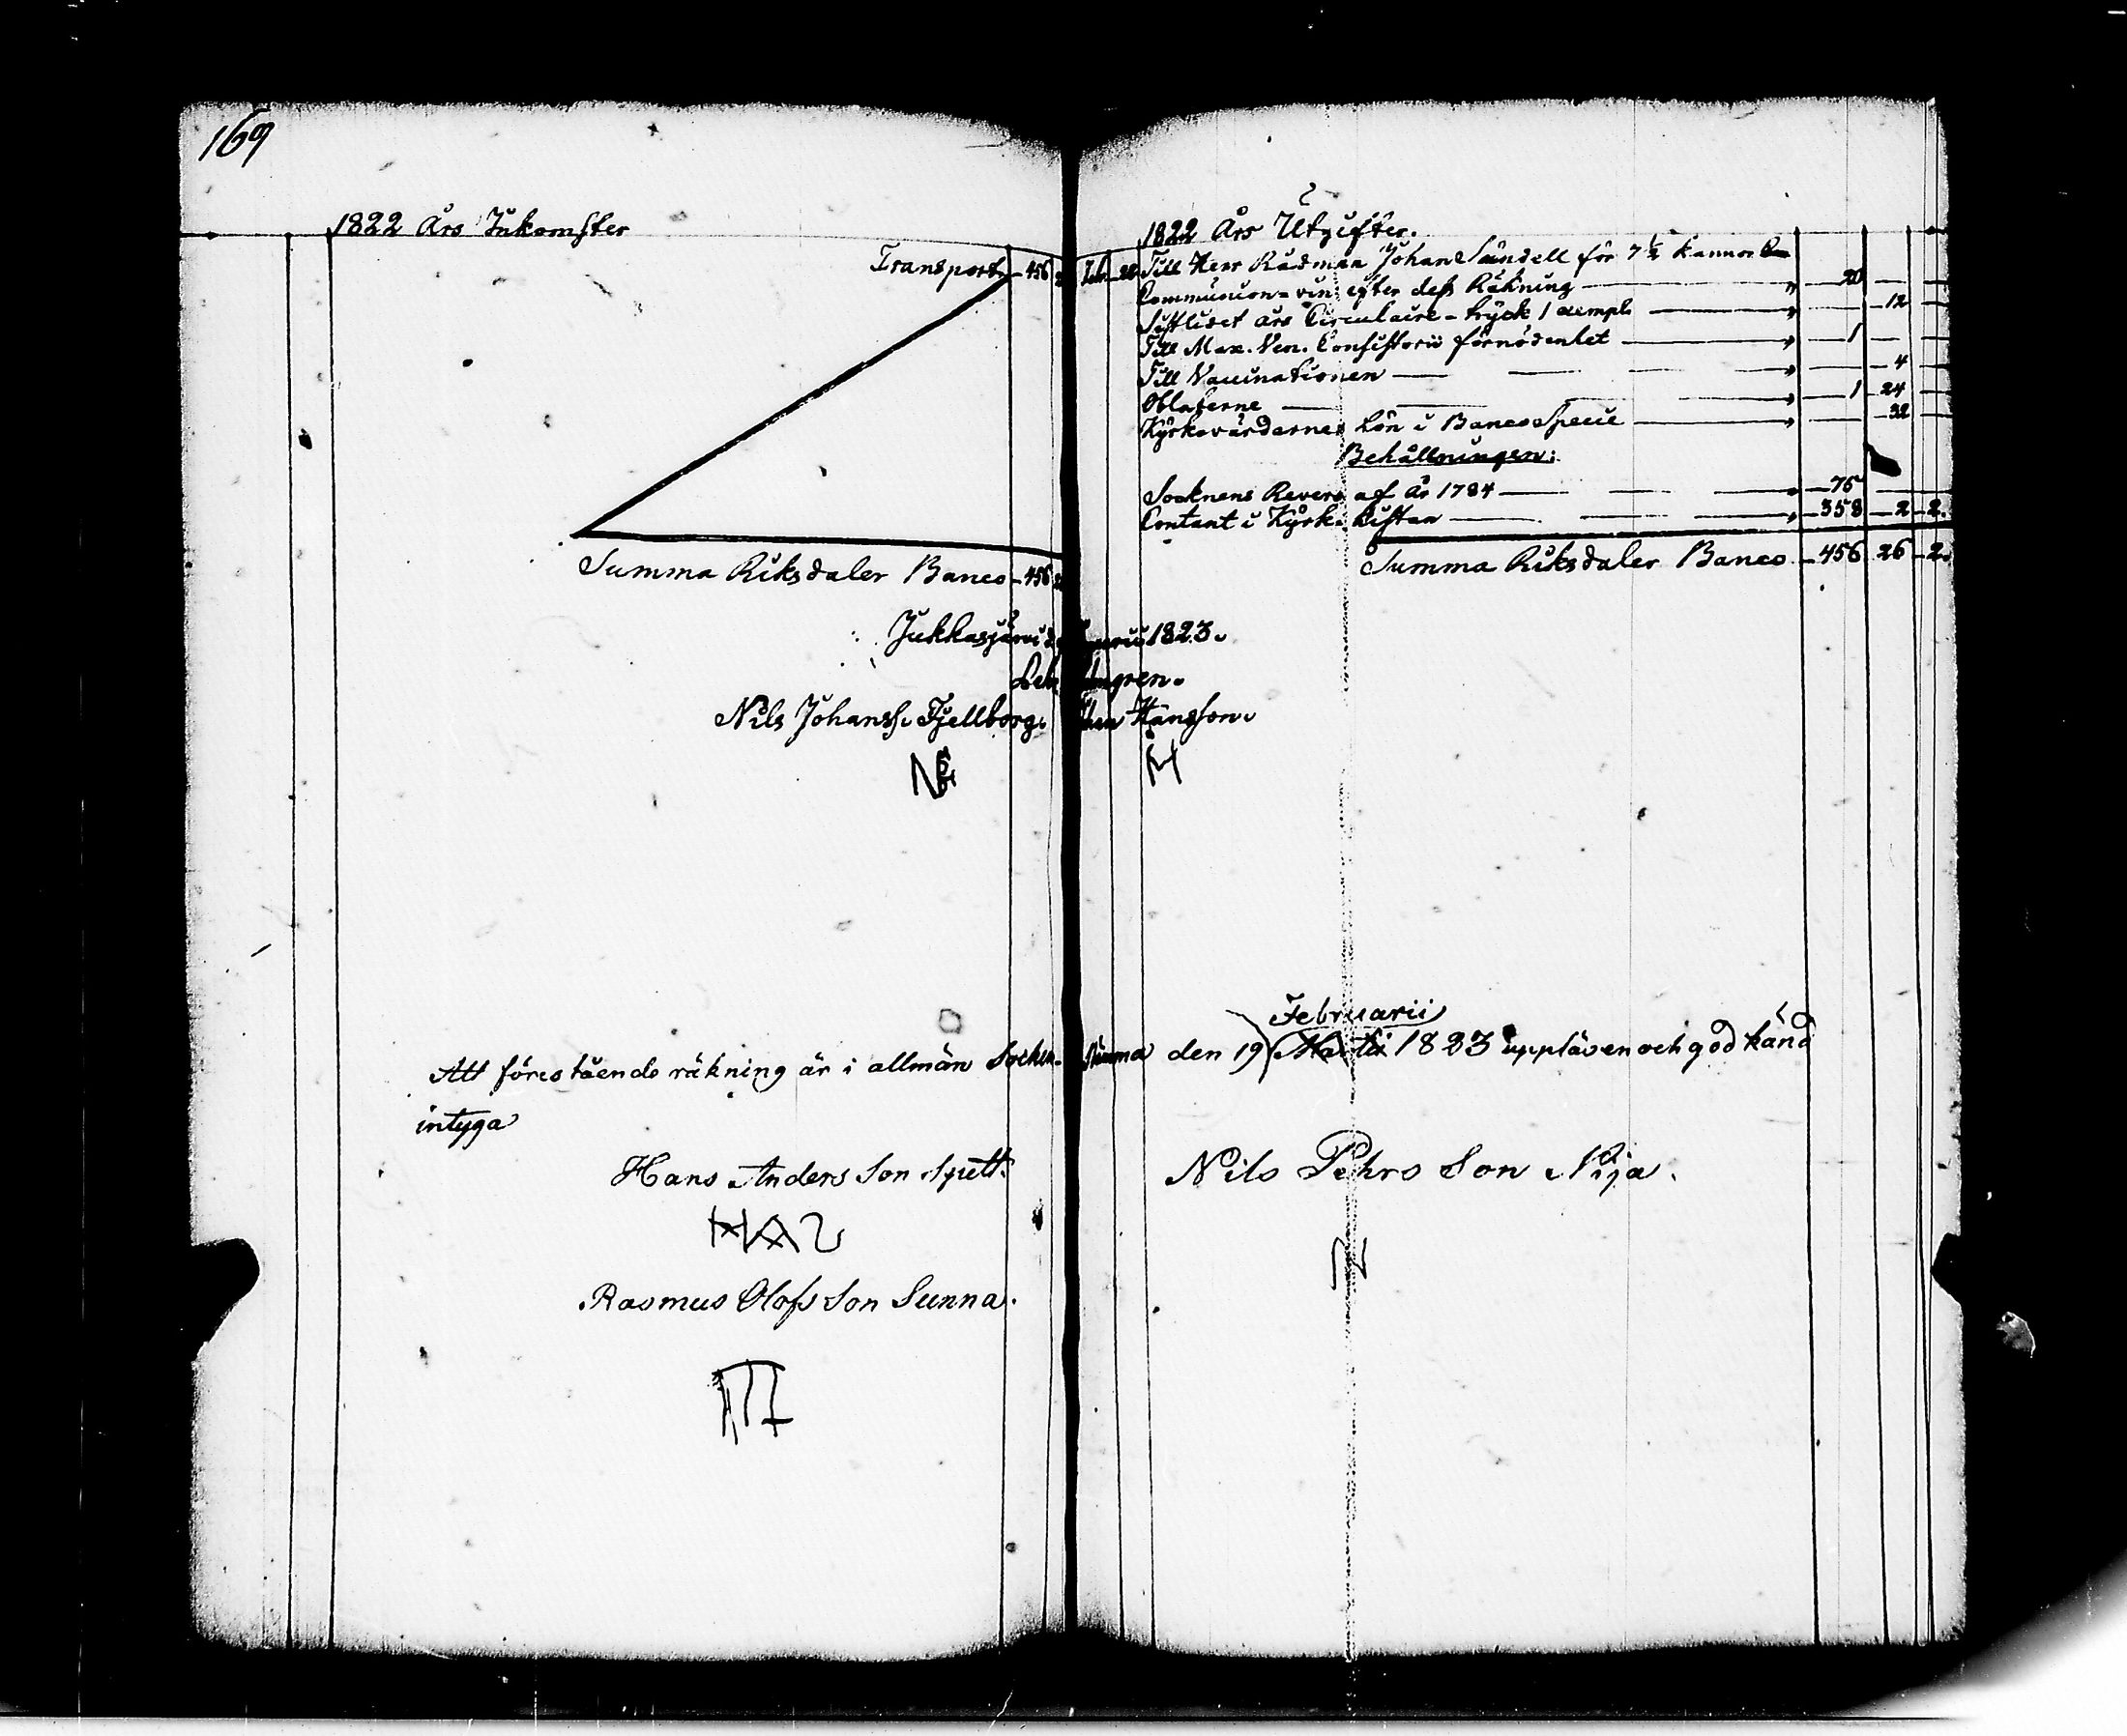 169
1822 Års Inkomster
Transport 456
Summa Riksdaler Banco 456
1822 Års Utgifter.
Febr. 28 Till Herr Rådman Johan Sundell för 7 ½ kannor
Communion-vin efter dess Räkning 20
Sistlidet års Circulaire-tryck 1 exempl. 12
Till Max. Ven. Consistorii förnödenhet 1
Till Vaccinationen 4
Oblaterne 1 24
Kyrkovärdernes Lön i Banco Specie 32
Behållningen:
Socknens Revers af År 1784 75
Contant i Kyrk-Kistan 358 2 2.
Summa Riksdaler Banco 456 26 2.
Jukkasjärvi 1823.
Nils Johanss. Fjellborg. Hansson.
Februarii
Att förestående räkning är i allmän Socken-Stämma den 19 Martii 1823 uppläsen och godkänd
intyga
Hans Anders Son Spett. Nils Pehrs Son Nija.
Rasmus Olofs Son Sunna.